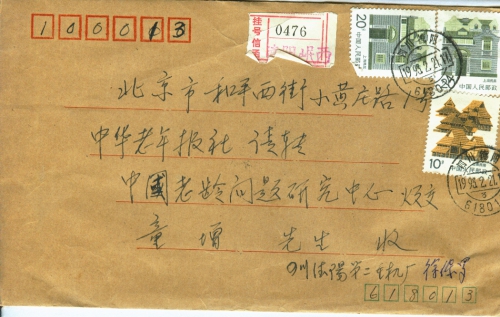 100013
挂号信函
0476
20分
中国人民邮政
中国人民邮政
10分
中国人民邮政
北京市和平西街小黄庄路1号
中华老年报社 请转
中國老龄问题研究中心 烦交
童增 先生 收
四川德陽第二重机厂 徐
618013